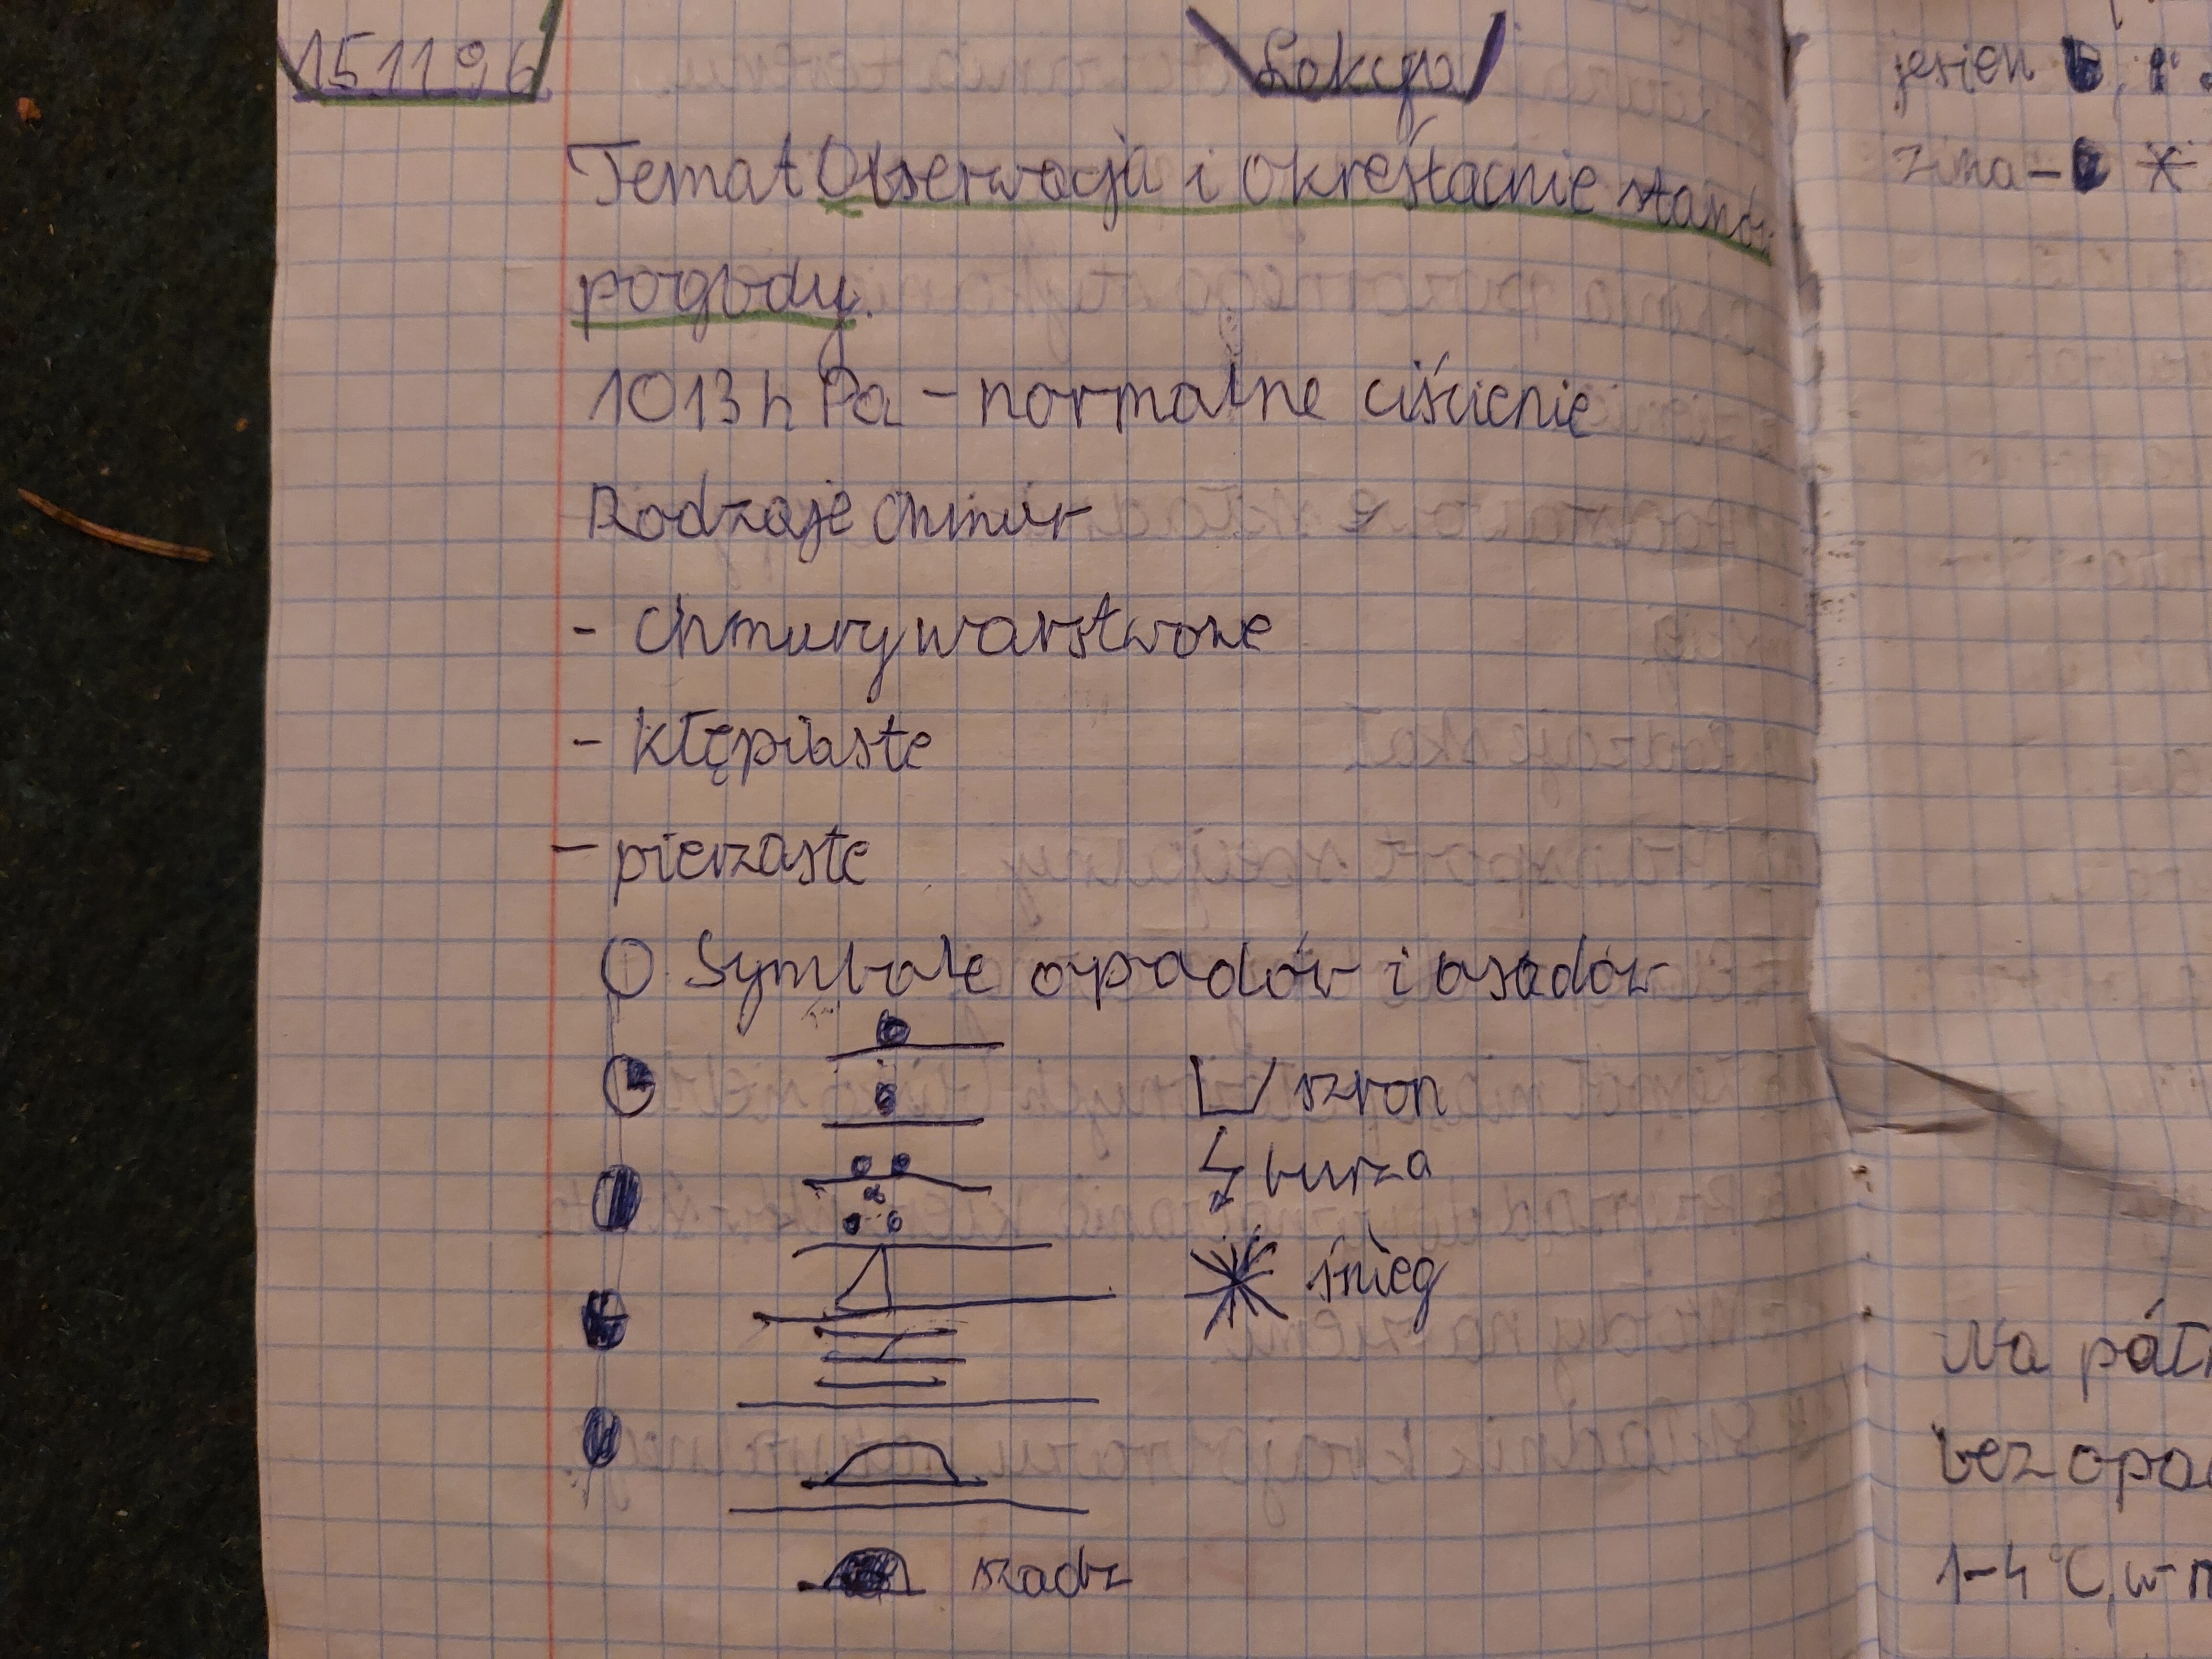 15 11 96
Lekcja
Temat Obserwacja i określanie stanu
pogody.
1013 hPa - normalne ciśienie
Rodzaje chmur
- Chmury warstwowe
- kłępiaste
- pierzaste
Symbole opadów i osadów
szron
burza
śnieg
szadz
jesień
zima -
Na
bez
1-4 °C, w